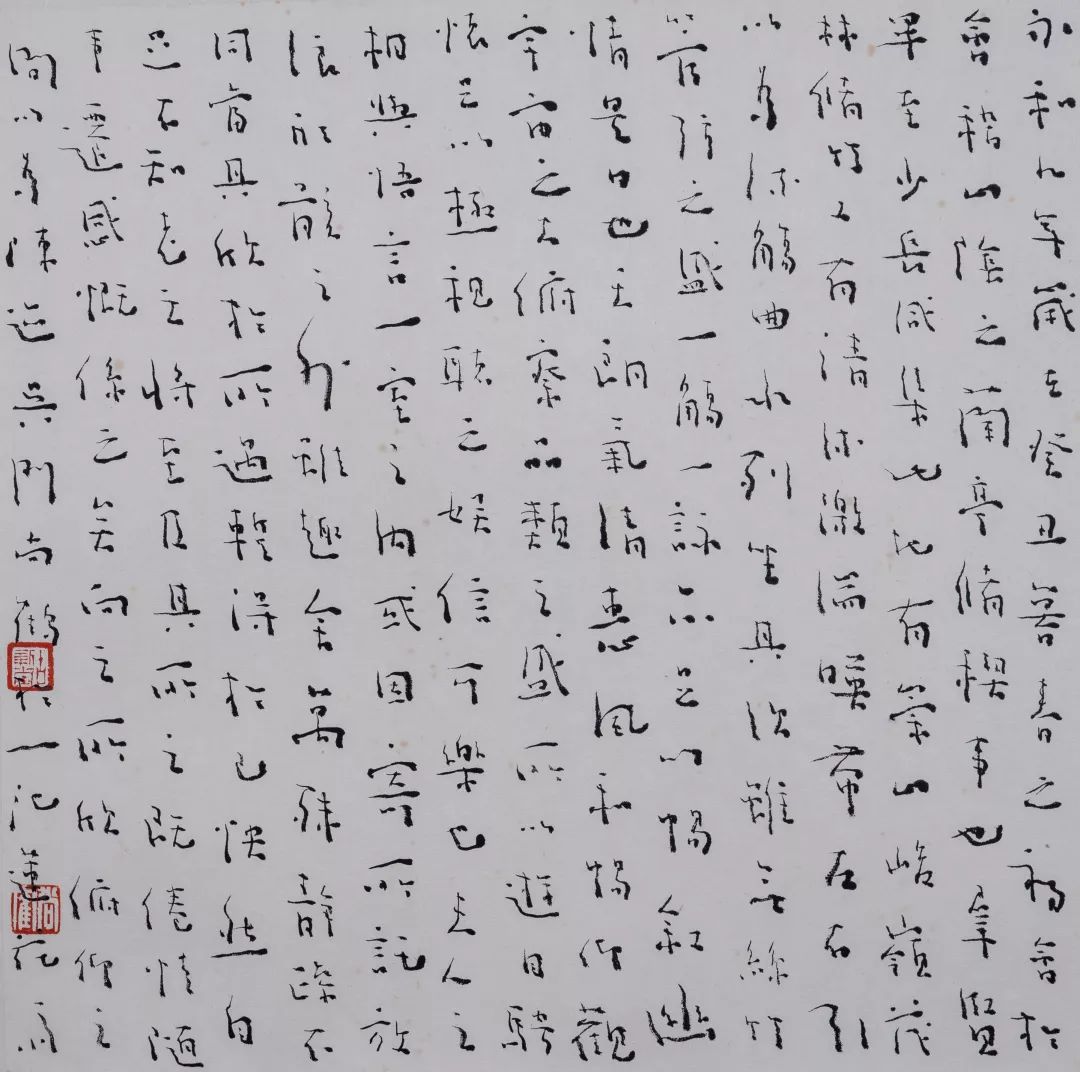 永和九年歲在癸丑暮春之初會於
會稽山陰之蘭亭脩禊事也羣賢
畢至少長咸集此地有崇山峻嶺茂
林脩竹又有清流激湍暎帶左右引
以為流觴曲水列坐其次雖無絲竹
管弦之盛一觴一詠亦足以暢敘幽
情是日也天朗氣清惠風和暢仰觀
宇宙之大俯察品類之盛所以遊目騁
懷足以極視聽之娛信可樂也夫人之
相與悟言一室之內或因寄所託放
浪形骸之外雖趣舍萬殊靜躁不
同當其欣於所遇暫得於己快然自
足不知老之將至及其所之既倦情隨
事遷感慨係之矣向之所欣俯仰之
間以為陳迹吳門尚鶴於一池蓮花